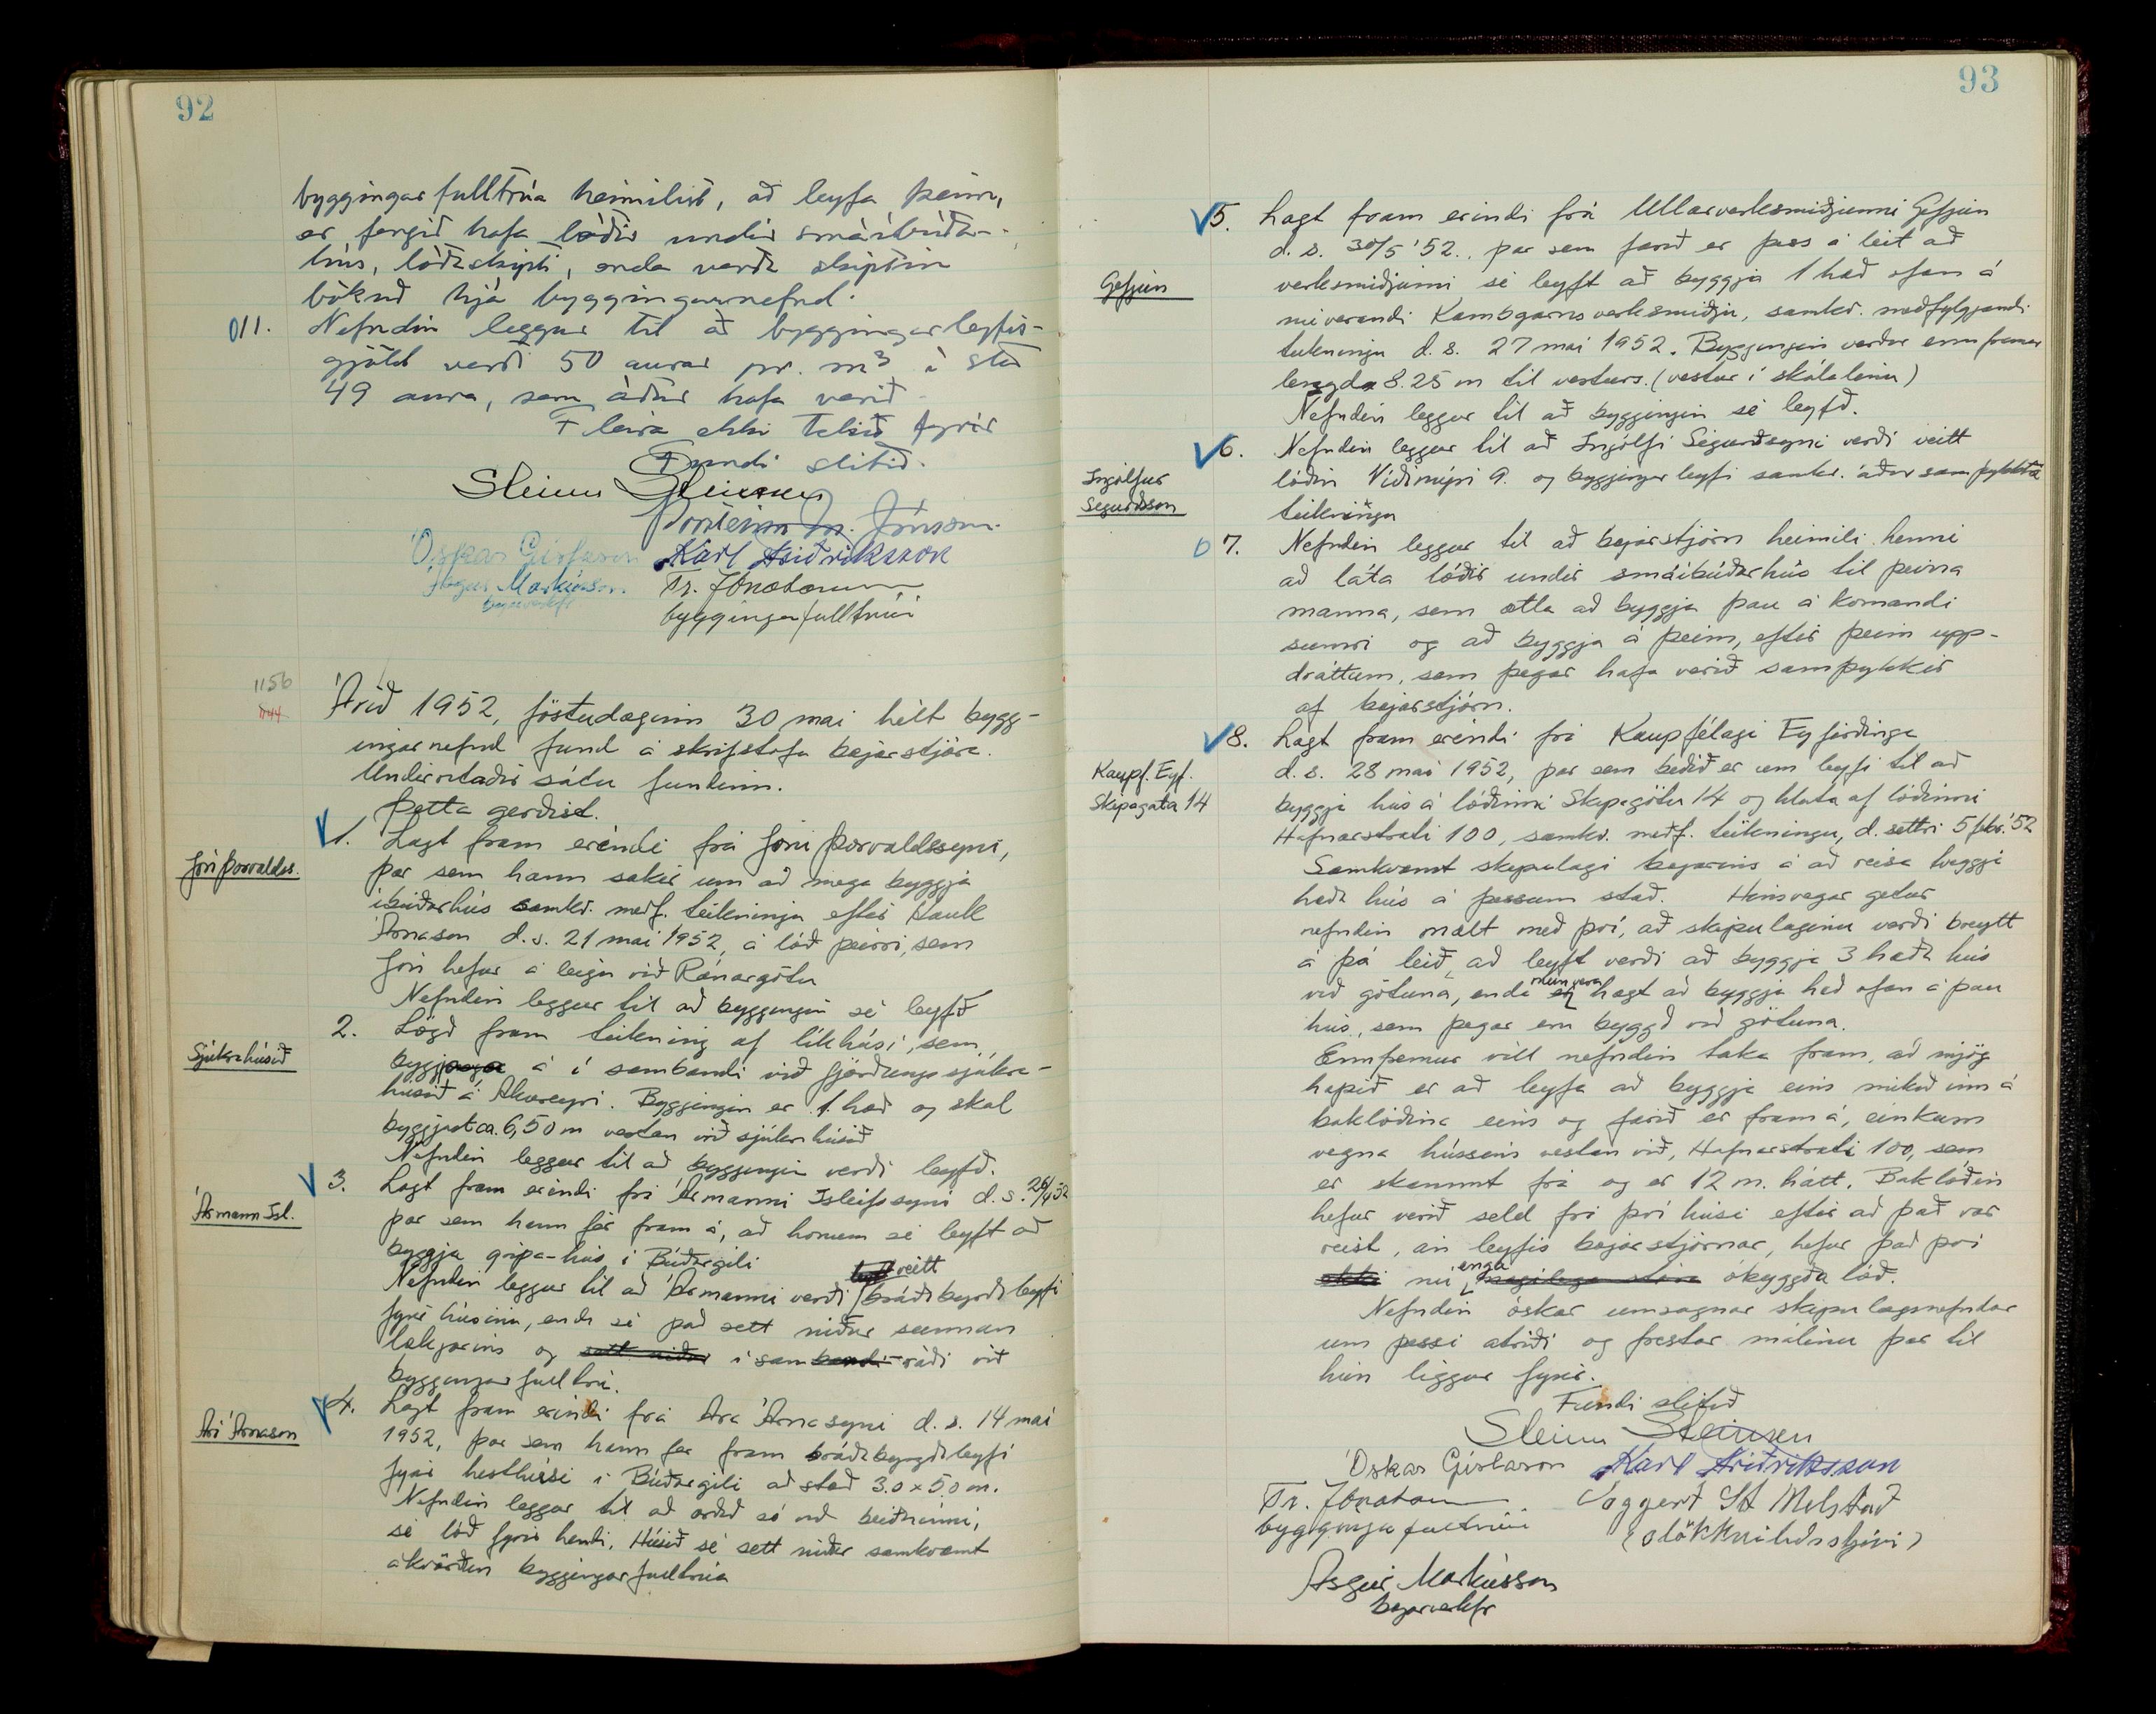 92
byggingarfulltrúa heimilist, að leyfa þeim,
er fengið hafa lóðir undir smáíbúðar-
hús, lóðaskipti, enda verða skiptin
bókuð hjá byggingarnefnd.
11. Nefndin leggur til að byggingarleyfis-
gjöld verði 50 aurar pr. m³ í stað
49 aura, sem áður hafa verið.
Fleira ekki tekið fyrir
Fundi slitið.
Steinn Steinsen
Þorsteinn M. Jónsson.
Óskar Gíslason Karl Friðriksson
Ásgeir Markússon. Tr. Jónatansson
bæjarverkfr. byggingafulltrúi
1156
1144
Árið 1952, föstudaginn 30 mai hélt bygg-
ingarnefnd fund á skrifstofu bæjarstjóra.
Undirritaðir sátu fundinn.
Þetta gerðist.
Jón Þorvaldss.
1. Lagt fram erindi frá Jóni Þorvaldssyni,
þar sem hann sækir um að mega byggja
íbúðarhús samkv. meðf. teikningu eftir Hauk
Árnason d.s. 21 mai 1952, á lóð þeirri, sem
Jón hefur á leigu við Ránargötu
Nefndin leggur til að byggingin sé leyfð
Sjúkrahúsið
2. Lögð fram teikning af líkhúsi, sem
byggja á í sambandi við fjórðungssjúkra-
húsið á Akureyri. Byggingin er 1. hæð og skal
byggjast ca. 6,50 m vestan við sjúkrahúsið
Nefndin leggur til að byggingin verði leyfð.
Ármann Ísl.
3. Lagt fram erindi frá Ármanni Ísleifssyni d.s. 26/4 52
þar sem hann fer fram á, að honum sé leyft að
byggja gripa-hús í Búðargili
Nefndin leggur til að Ármanni verði leyft veitt bráðabyrðaleyfi
fyrir húsinu, enda sé það sett niður sunnan
lækjarins og sett niður í sambandi ráði við
byggingarfulltrú.
Ari Árnason
4. Lagt fram erindi frá Ara Árnasyni d.s. 14 mai
1952, þar sem hann fer fram bráðabyrgðaleyfi
fyrir hesthúsi í Búðargili að stað 3.0 x 5.0 m.
Nefndin leggur til að orðið sé við beiðninni,
sé lóð fyrir hendi. Húsið sé sett niður samkvæmt
ákvörðun byggingarfulltrúa
93
5. Lagt fram erindi frá Ullarverksmiðjunni Gefjun
d.s. 30/5 '52., þar sem farið er þess á leit að
Gefjun
verksmiðjunni sé leyft að byggja 1 hæð ofan á
núverandi Kambgarnsverksmiðju, samkv. meðfylgjandi
teikningu d.s. 27 mai 1952. Byggingin verður ennfremur
lengda 8.25 m til vesturs. (vestur í skálalínu)
Nefndin leggur til að byggingin sé leyfð.
6. Nefndin leggur til að Ingólfi Sigurðssyni verði veitt
Ingólfur
Sigurðsson
lóðin Víðimýri 9. og byggingarleyfi samkv. áður samþykktri
teikningu
7. Nefndin leggur til að bæjarstjórn heimili henni
að láta lóðir undir smáíbúðarhús til þeirra
manna, sem ætla að byggja þau á komandi
sumri og að byggja á þeim, eftir þeim upp-
dráttum, sem þegar hafa verið samþykkir
af bæjarstjórn.
8. Lagt fram erindi frá Kaupfélagi Eyfirðinga
Kaupf. Eyf.
Skipagata 14
d.s. 28 mai 1952, þar sem beðið er um leyfi til að
byggja hús á lóðinni Skipagötu 14 og hluta af lóðinni
Hafnarstræti 100, samkv. meðf. teikningu, d. settri 5 febr. '52
Samkvæmt skipulagi bæjarins á að reisa tveggja
hæða hús á þessum stað. Hinsvegar getur
nefndin mælt með því, að skipulaginu verði breytt
á þá leið, að leyft verði að byggja 3 hæða hús
við götuna, enda mun vera hægt að byggja hæð ofan á þau
hús, sem þegar eru byggð við götuna.
Ennfremur vill nefndin taka fram, að mjög
hæpið er að leyfa að byggja eins mikið inn á
baklóðina eins og farið er fram á, einkum
vegna hússins vestan við, Hafnarstræti 100, sem
er skammt frá og er 12 m. hátt. Baklóðin
hefur verið seld frá því húsi eftir að það var
reist, án leyfis bæjarstjórnar, hefur það því
ekki nú enga nægilega stóra óbyggða lóð.
Nefndin óskar umsagnar skipulagsnefndar
um þessi atriði og frestar málinu þar til
hún liggur fyrir.
Fundi slitið
Steinn Steinsen
Óskar Gíslason Karl Friðriksson
Tr. Jónatansson Eggert St Melstað
byggingafulltrúi (slökkviliðsstjóri)
Ásgeir Markússon
bæjarverkfr